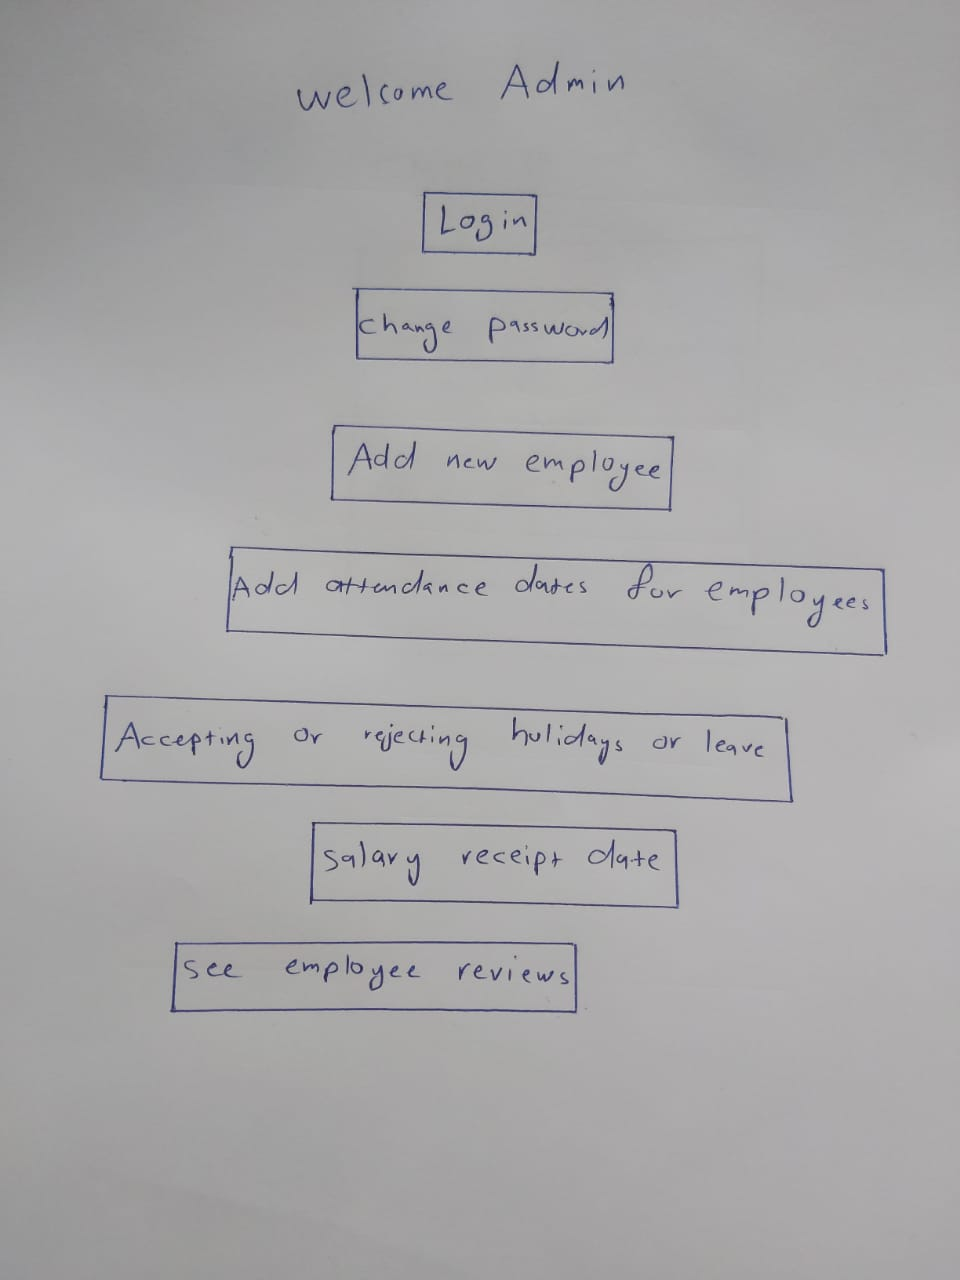 welcome Admin
Login
change password
Add new employee
Add attendance dates for employees
Accepting or rejecting holidays or leave
salary receipt date
see employee reviews